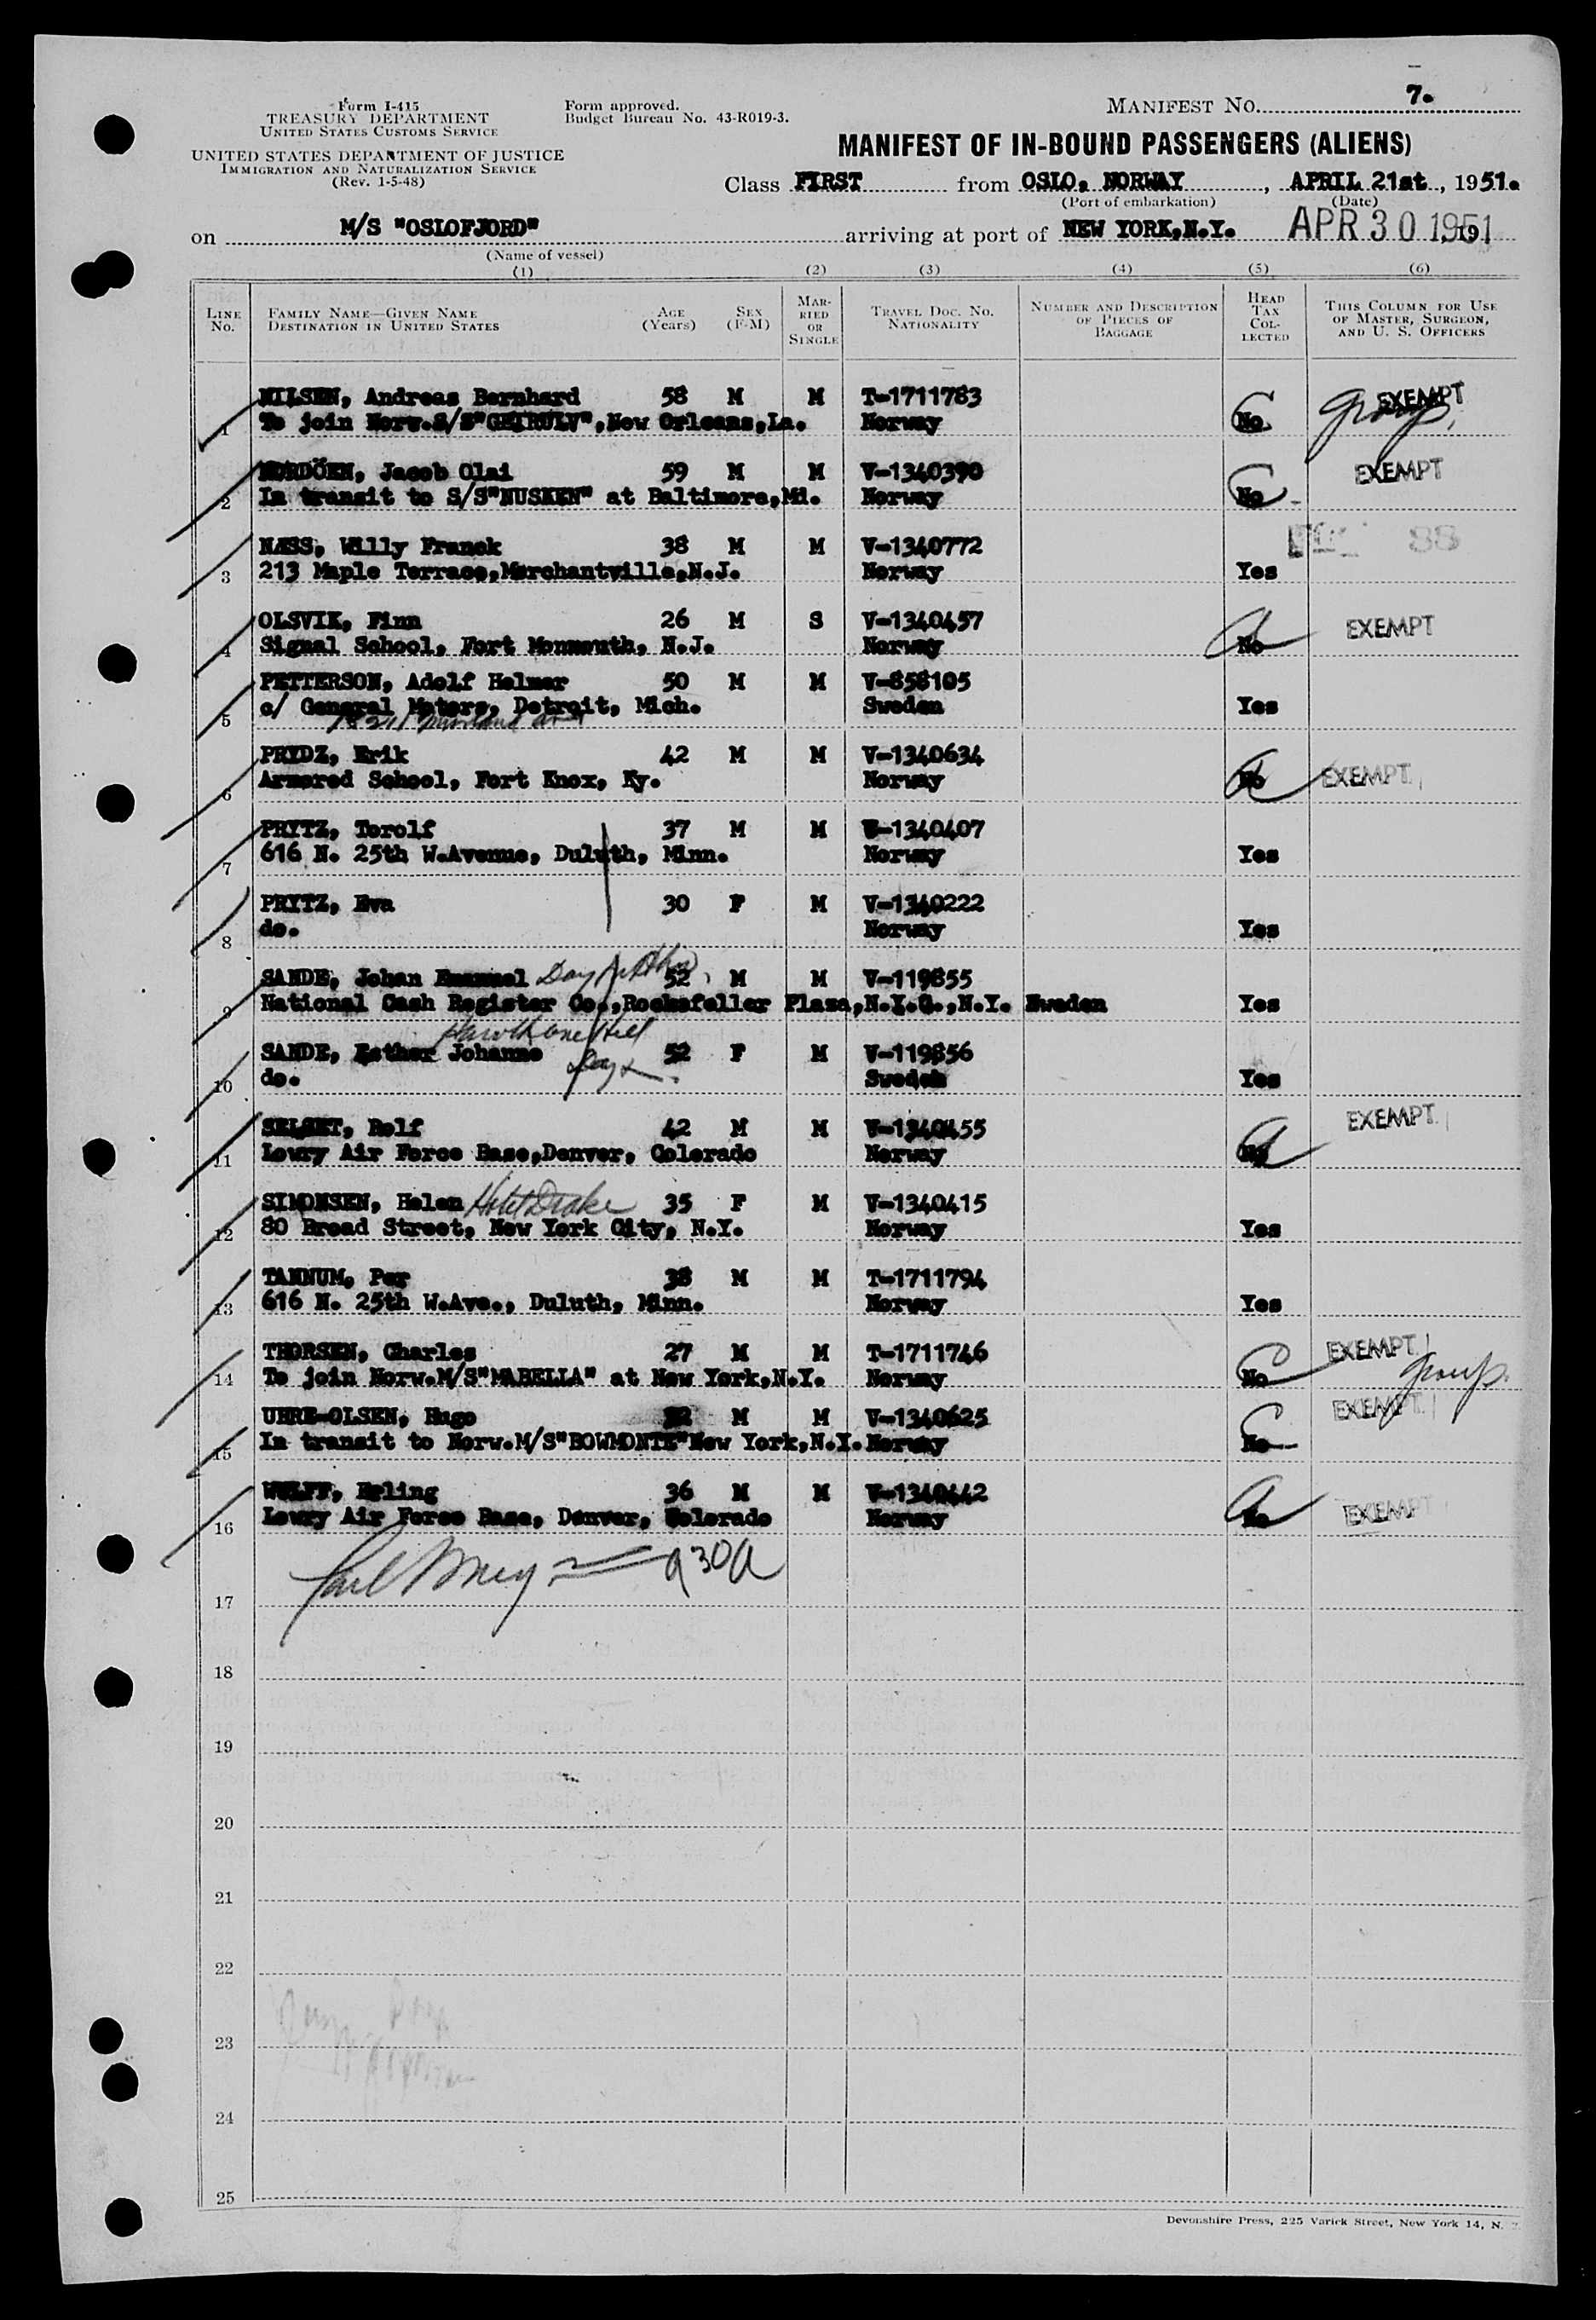 Form I-415
TREASURY DEPARTMENT
UNITED STATES CUSTOMS SERVICE
UNITED STATES DEPARTMENT OF JUSTICE
IMMIGRATION AND NATURALIZATION SERVICE
(Rev. 1-5-48)
Form approved.
Budget Bureau No. 43-R019-3.
MANIFEST NO. 7.
MANIFEST OF IN-BOUND PASSENGERS (ALIENS)
Class FIRST from OSLO, NORWAY, APRIL 21st, 1951.
(Port of embarkation) (Date)
on M/S "OSLOFJORD" arriving at port of NEW YORK,N.Y. APR 30 1951, 19
(Name of vessel)
(1) (2) (3) (4) (5) (6)
LINE NO. FAMILY NAME—GIVEN NAME DESTINATION IN UNITED STATES AGE (Years) SEX (F-M) MARRIED OR SINGLE TRAVEL DOC. NO. NATIONALITY NUMBER AND DESCRIPTION OF PIECES OF BAGGAGE HEAD TAX COLLECTED THIS COLUMN FOR USE OF MASTER, SURGEON, AND U. S. OFFICERS
NILSEN, Andreas Bernhard 58 M M T-1711783 EXEMPT
1 To join Norw.S/S"GEIRULV",New Orleans,La. Norway No group
NORDÖEN, Jacob Olai 59 M M V-1340390 EXEMPT
2 In transit to S/S"NUSKEN" at Baltimore,Md. Norway No
NÆSS, Willy Franck 38 M M V-1340772 88
3 213 Maple Terrace,Merchantville,N.J. Norway Yes
OLSVIK, Finn 26 M S V-1340457 EXEMPT
4 Signal School, Fort Monmouth, N.J. Norway No
PETTERSON, Adolf Helmer 50 M M V-858105
5 c/ General Motors, Detroit, Mich. Sweden Yes
PRYDZ, Erik 42 M M V-1340634
6 Armored School, Fort Knox, Ky. Norway No EXEMPT
PRYTZ, Torolf 37 M M V-1340407
7 616 N. 25th W.Avenue, Duluth, Minn. Norway Yes
PRYTZ, Eva 30 F M V-1340222
8 do. Norway Yes
SANDE, Johan Emanuel 52 M M V-119855
9 National Cash Register Co.,Rockefeller Plaza,N.Y.C.,N.Y. Sweden Yes
SANDE, Esther Johanne 52 F M V-119856
10 do. Sweden Yes
SELSET, Rolf 42 M M V-1340455 EXEMPT
11 Lowry Air Force Base,Denver, Colorado Norway No
SIMONSEN, Helen Hotel Drake 35 F M V-1340415
12 80 Broad Street, New York City, N.Y. Norway Yes
TANNUM, Per 38 M M T-1711794
13 616 N. 25th W.Ave., Duluth, Minn. Norway Yes
THORSEN, Charles 27 M M T-1711746 EXEMPT
14 To join Norw.M/S"MABELLA" at New York,N.Y. Norway No group
UHRE-OLSEN, Hugo M M V-1340625 EXEMPT
15 In transit to Norw.M/S"BOWMONTE"New York,N.Y. Norway No
WULFF, Erling 36 M M V-1340442
16 Lowry Air Force Base, Denver, Colorado Norway No EXEMPT
930A
17
18
19
20
21
22
23
24
25
Devonshire Press, 225 Varick Street, New York 14, N.